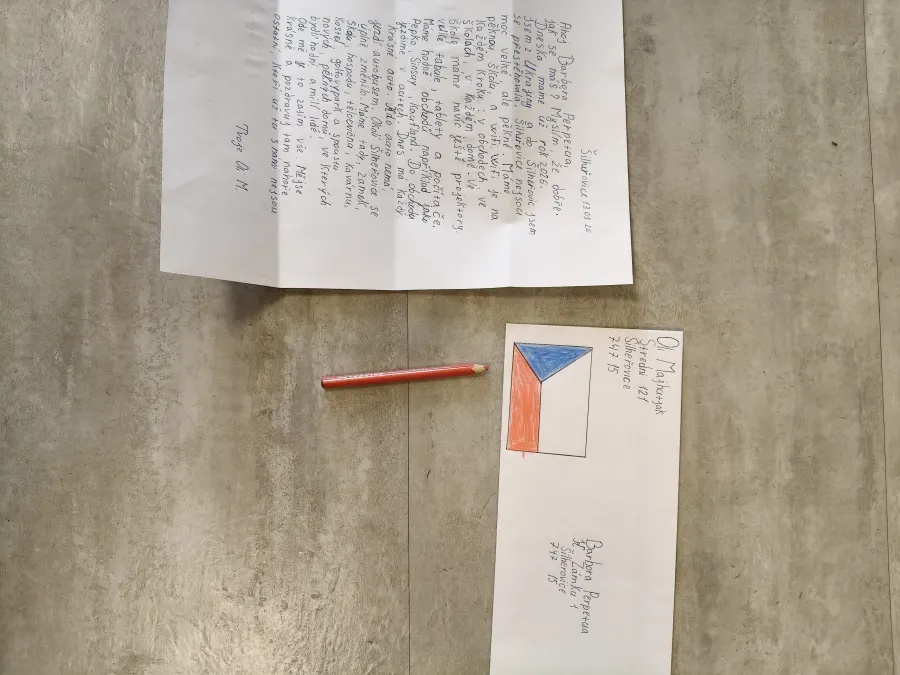 Šilheřovice 13.03 26
Ahoj Barbora Perpetua,
jak se máš? Myslím, že dobře.
Dneska máme už rok 2026.
Jsem z Ukrajiny a do Šilheřovic jsem
se přestěhovala. Šilheřovice nejsou
moc velké ale pěkné. Máme
pěknou školu a wifi. Wifi je na
každém kroku: v obchodech, ve
školách, v každém domě. Ve
škole máme navíc ještě projektory,
velké tabole, tablety a počítače.
Máme hodně obchodů například jako
Pepko, Sinsay, Kaufland. Do obchodu
jezdíme v autech. Dnes má každý
krásné auto. Kdo auto nemá,
jezdí autobusem. Okolí Šilheřovice se
úplně změnilo. Máme tady zámek,
hospodu, tělocvičnu, kavárnu,
kostel, golfový park a spousta
nových pěkných domů, ve kterých
bydlí hodní a milí lidé.
Ode mě je to zatím vše. Měj se
krásně a pozdravuj tam nahoře
ostatní, kteří už tu s námi nejsou
Tvoje Oli M.
Oli Majhatjak
Střední 121
Šilheřovice
747 15
Barbora Perpetua
Zámku 1
Šilheřovice
747 15